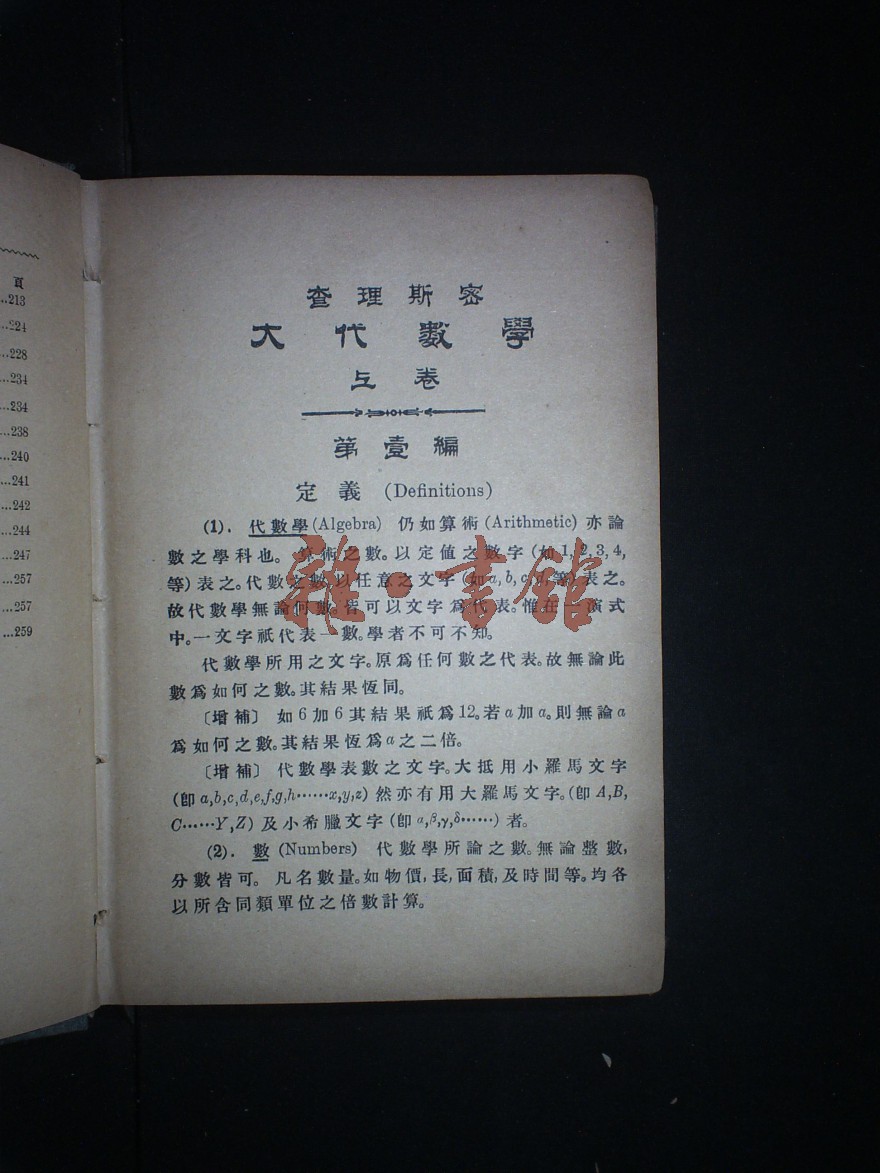 頁
...213
...224
...228
...234
...234
...238
...240
...241
...242
...244
...247
...257
...257
...259
查理斯密
大代數學
上卷
第壹編
定義 (Definitions)
(1). 代數學 (Algebra) 仍如算術 (Arithmetic) 亦論
數之學科也。算術之數。以定值之數字 (如 1, 2, 3, 4,
等) 表之。代數之數。以任意之文字 (如 a, b, c, d, 等) 表之。
故代數學無論何數。皆可以文字爲代表。惟在一演式
中。一文字祇代表一數。學者不可不知。
代數學所用之文字。原爲任何數之代表。故無論此
數爲如何之數。其結果恆同。
〔增補〕 如 6 加 6 其結果祇爲 12。若 a 加 a。則無論 a
爲如何之數。其結果恆爲 a 之二倍。
〔增補〕 代數學表數之文字。大抵用小羅馬文字
(卽 a,b,c,d,e,f,g,h……x,y,z) 然亦有用大羅馬文字。(卽 A,B,
C……Y,Z) 及小希臘文字 (卽 α,β,γ,δ……) 者。
(2). 數 (Numbers) 代數學所論之數。無論整數,
分數皆可。凡名數量。如物價,長,面積,及時間等。均各
以所含同類單位之倍數計算。
雜·書館